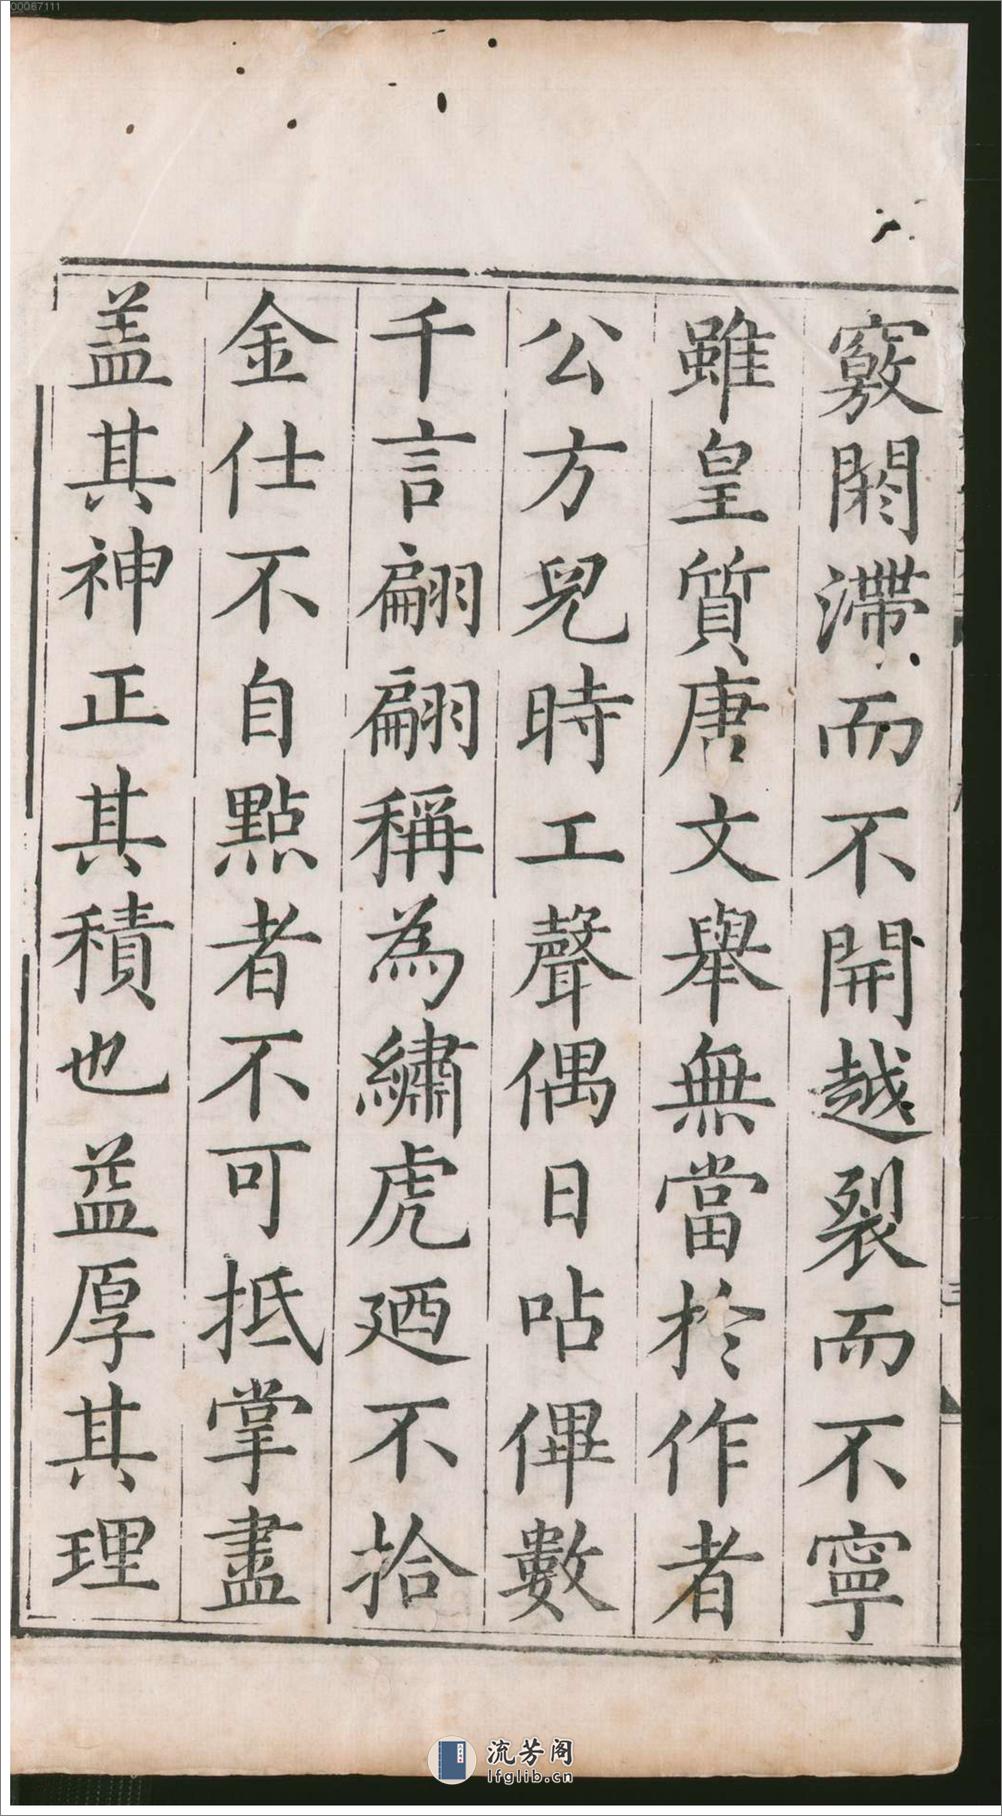 竅閼滯而不開越裂而不寧
雖皇質唐文舉無當於作者
公方兒時工聲偶日呫俾數
千言翩翩稱為繡虎廼不拾
金仕不自點者不可抵掌盡
盖其神正其積也益厚其理
00067111
三
流芳阁
lfglib.cn